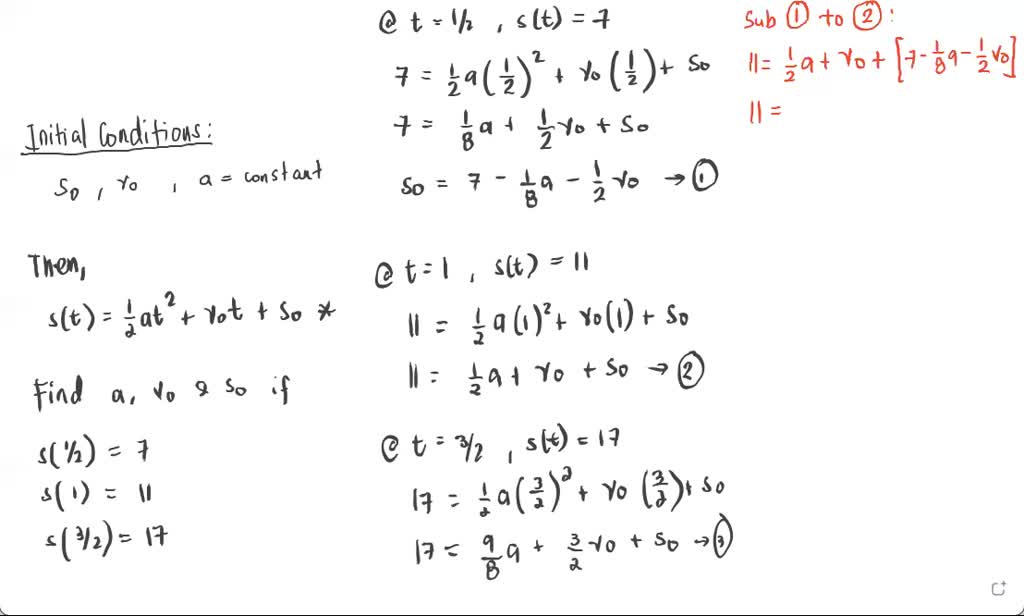 Initial Conditions:
S₀, v₀, a = constant
Then,
s(t) = 1/2 at² + v₀t + S₀ *
Find a, v₀ & S₀ if
s(1/2) = 7
s(1) = 11
s(3/2) = 17
@ t = 1/2, s(t) = 7
7 = 1/2 a(1/2)² + v₀(1/2) + S₀
7 = 1/8 a + 1/2 v₀ + S₀
S₀ = 7 - 1/8 a - 1/2 v₀ → ①
@ t = 1, s(t) = 11
11 = 1/2 a(1)² + v₀(1) + S₀
11 = 1/2 a + v₀ + S₀ → ②
@ t = 3/2, s(t) = 17
17 = 1/2 a(3/2)² + v₀(3/2) + S₀
17 = 9/8 a + 3/2 v₀ + S₀ → ③
Sub ① to ②:
11 = 1/2 a + v₀ + [7 - 1/8 a - 1/2 v₀]
11 =